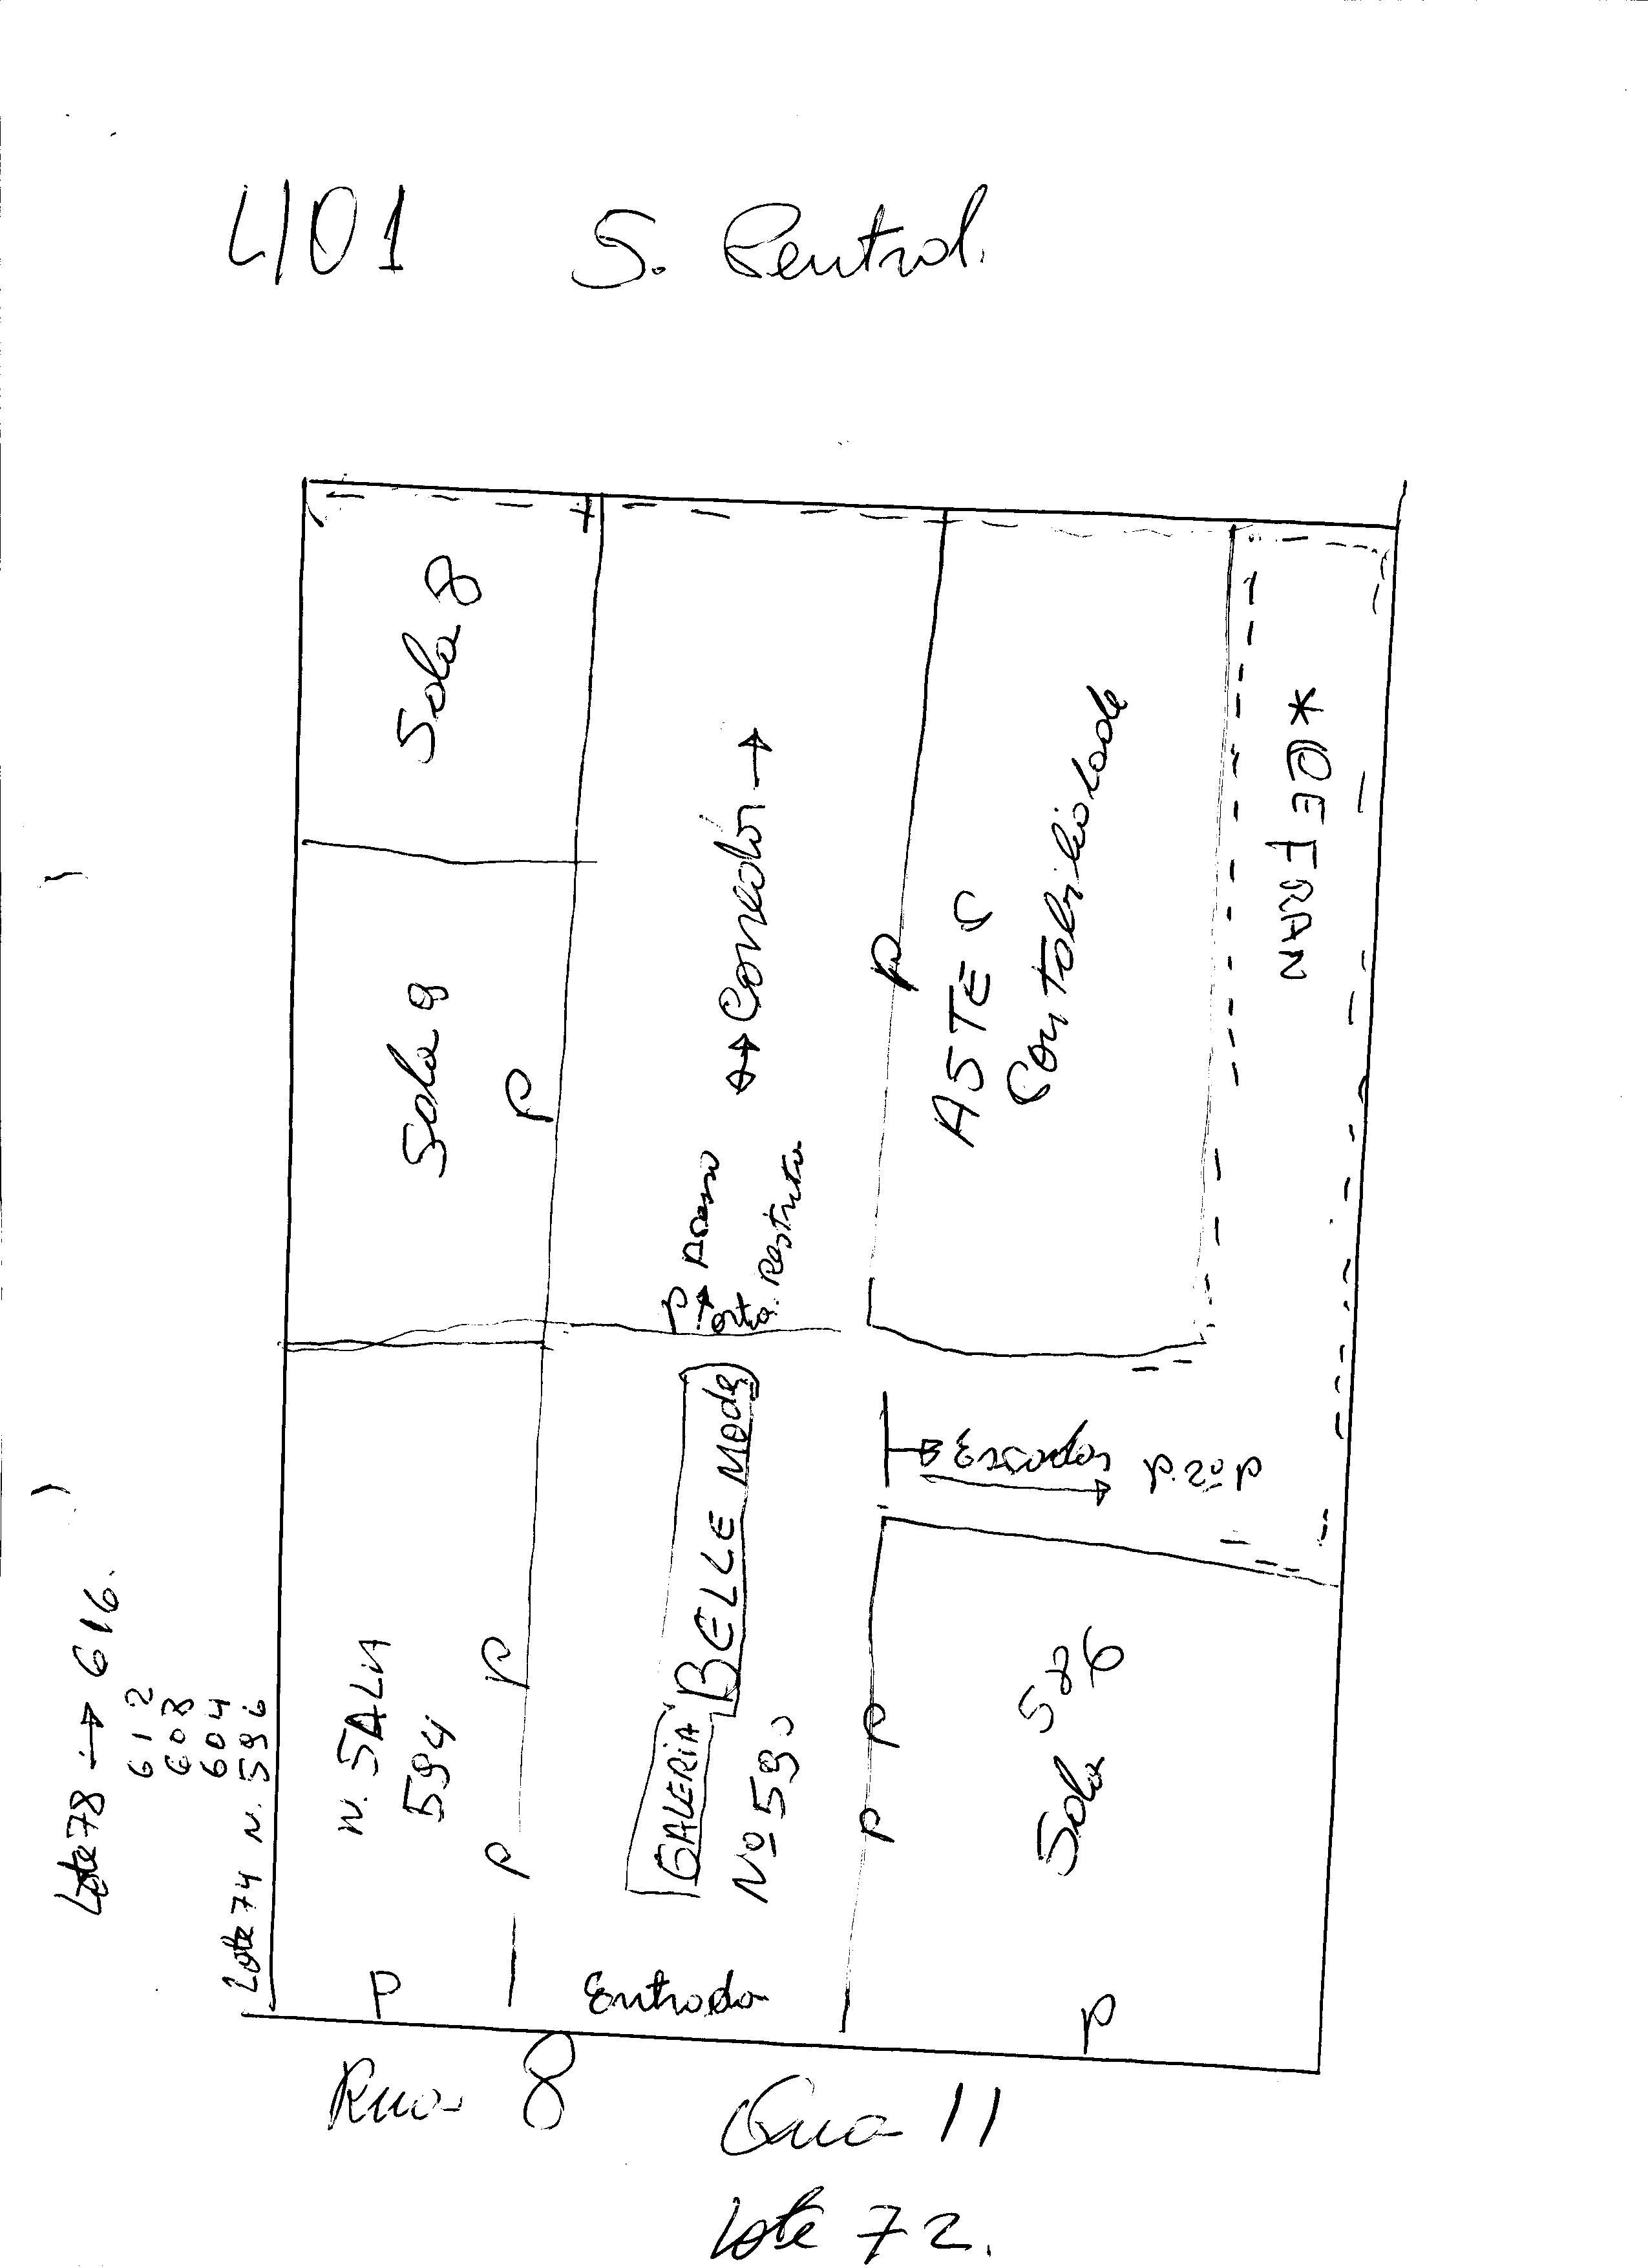 401 S. Central.
Sala 8
Sala 9
← → Corredor →
P → Acesso
orta. Restrita
P
P
ASTEC
Contabilidade
* CEFRAN
Escadas p. 2º P
Lote 78 → 616.
612
608
604
Lote 74 N. 596
N. SALA
594
P
P
P
GALERIA BELLE Moda
Nº 590
Entrada
P
P
Sala 586
P
Rua 8 Qua 11
Lote 72.